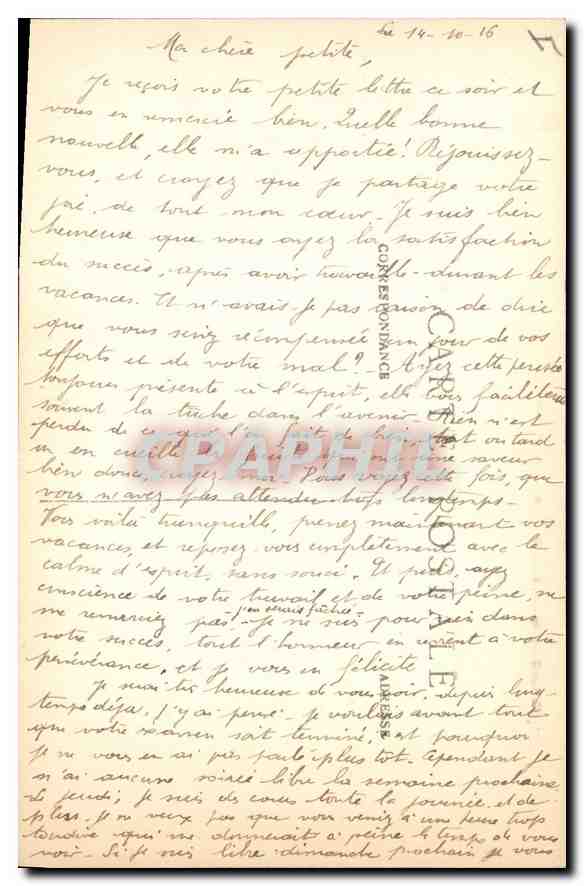 Le 14-10-16
Ma chère petite,
Je reçois votre petite lettre ce soir et
vous en remercie bien. Quelle bonne
nouvelle, elle m'a apportée! Réjouissez-
vous, et croyez que je partage votre
joie de tout mon cœur. Je suis bien
heureuse que vous ayez la satisfaction
du succès, après avoir travaillé durant les
vacances. Et n'avais-je pas raison de dire
que vous seriez récompensée un jour de vos
efforts et de votre mal? - Ayez cette pensée
toujours présente à l'esprit, elle vous facilitera
souvent la tâche dans l'avenir. Rien n'est
perdu de ce que l'on fait de bien, tôt ou tard
on en cueille saveur
bien douce, croyez-moi. Vous voyez cette fois, que
vous n'avez pas attendu trop longtemps -
Vous voilà tranquille, prenez maintenant vos
vacances, et reposez-vous complètement avec le
calme d'esprit, sans souci. Et puis, ayez
conscience de votre travail et de votre peine, ne
me remerciez pas - j'en serais fâchée - je ne suis pour rien dans
votre succès, tout l'honneur en revient à votre
persévérance, et je vous en félicite
Je serai très heureuse de vous voir, depuis long-
temps déjà, j'y ai pensé - je voulais avant tout
que votre examen soit terminé, c'est pourquoi
je ne vous en ai pas parlé plus tôt. Cependant je
n'ai aucune soirée libre la semaine prochaine
Le jeudi, je suis des cours toute la journée et de
plus, je ne veux pas que vous veniez à une heure trop
tardive qui me donnerait à peine le temps de vous
voir - Si je suis libre dimanche prochain je vous
CORRESPONDANCE
CARTE POSTALE
ADRESSE
CPAPHIL